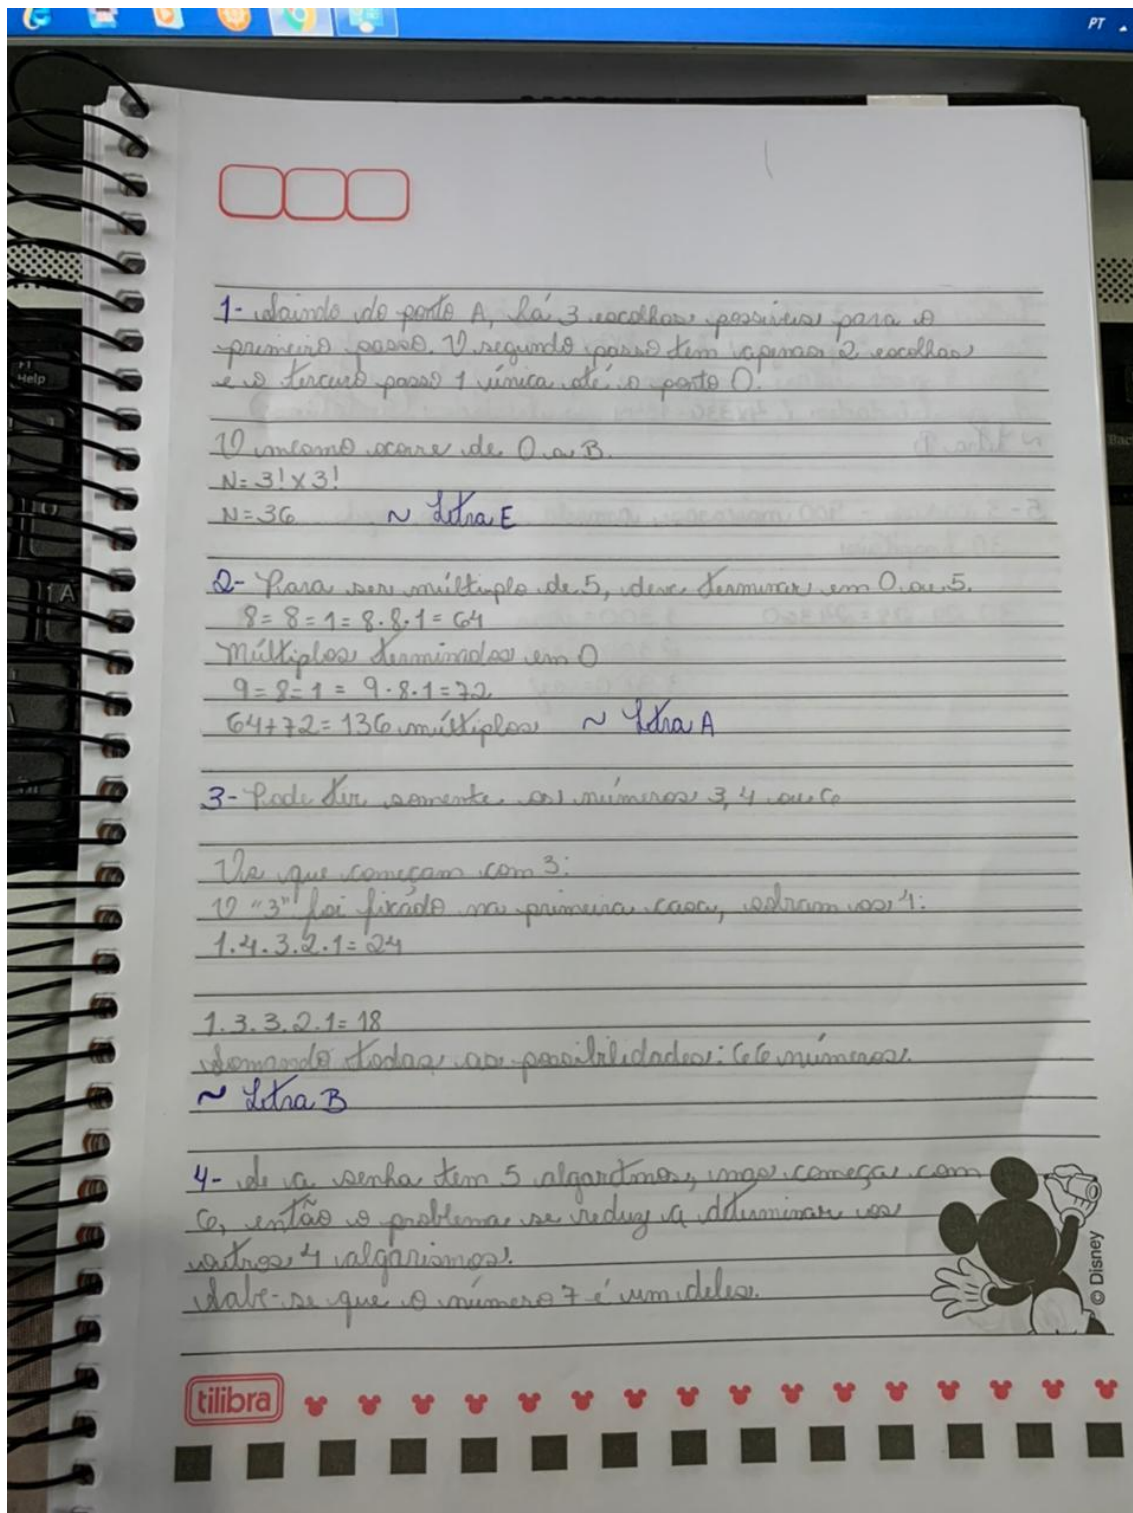 PT
Help
A
1- Saindo do ponto A, há 3 escolhas possíveis para o
primeiro passo. O segundo passo tem apenas 2 escolhas
e o terceiro passo 1 única até o ponto O.
O mesmo ocorre de O a B.
N=3! x 3!
N=36 ~ Letra E
2- Para ser múltiplo de 5, deve terminar em 0 ou 5.
8=8=1=8.8.1=64
Múltiplos terminados em 0
9=8=1=9.8.1=72
64+72=136 múltiplos ~ Letra A
3- Pode ter somente os números 3, 4 ou 6
Os que começam com 3:
O "3" foi fixado na primeira casa, sobram os 4:
1.4.3.2.1=24
1.3.3.2.1=18
Somando todas as possibilidades: 66 números.
~ Letra B
4- Se a senha tem 5 algarismos, mas começa com
6, então o problema se reduz a determinar os
outros 4 algarismos.
Sabe-se que o número 7 é um deles.
© Disney
tilibra